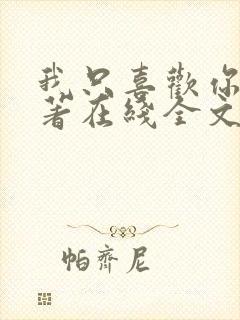 我只喜歡你
著在綫全文
帕齊尼